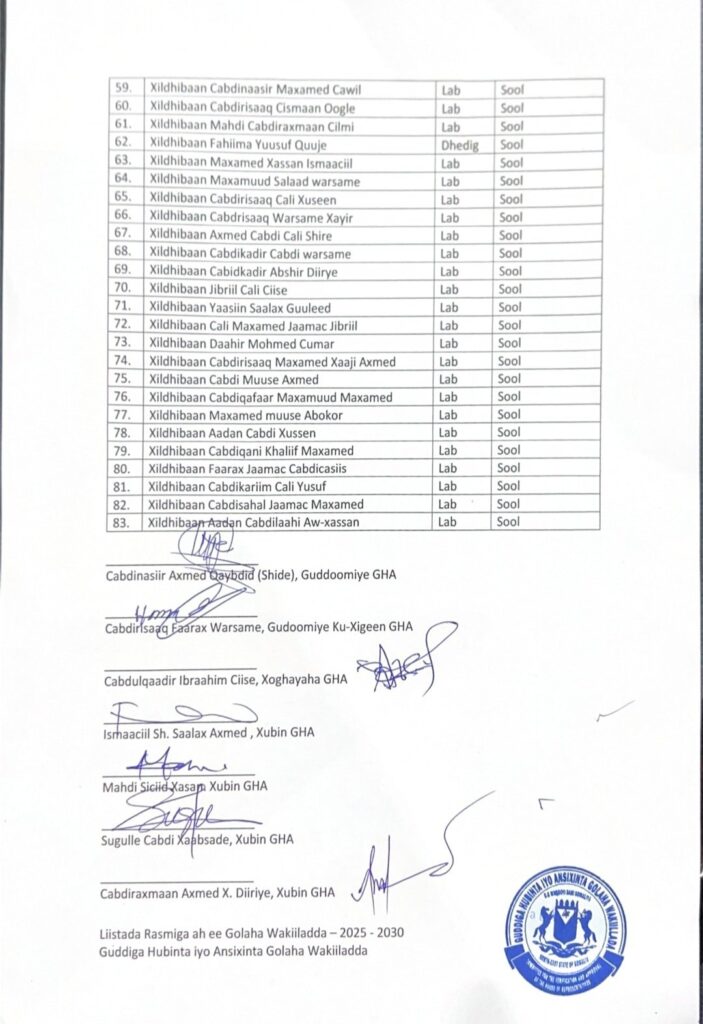 59. Xildhibaan Cabdinaasir Maxamed Cawil Lab Sool
60. Xildhibaan Cabdirisaaq Cismaan Oogle Lab Sool
61. Xildhibaan Mahdi Cabdiraxmaan Cilmi Lab Sool
62. Xildhibaan Fahiima Yuusuf Quuje Dhedig Sool
63. Xildhibaan Maxamed Xassan Ismaaciil Lab Sool
64. Xildhibaan Maxamuud Salaad warsame Lab Sool
65. Xildhibaan Cabdirisaaq Cali Xuseen Lab Sool
66. Xildhibaan Cabdrisaaq Warsame Xayir Lab Sool
67. Xildhibaan Axmed Cabdi Cali Shire Lab Sool
68. Xildhibaan Cabdikadir Cabdi warsame Lab Sool
69. Xildhibaan Cabidkadir Abshir Diirye Lab Sool
70. Xildhibaan Jibriil Cali Ciise Lab Sool
71. Xildhibaan Yaasiin Saalax Guuleed Lab Sool
72. Xildhibaan Cali Maxamed Jaamac Jibriil Lab Sool
73. Xildhibaan Daahir Mohmed Cumar Lab Sool
74. Xildhibaan Cabdirisaaq Maxamed Xaaji Axmed Lab Sool
75. Xildhibaan Cabdi Muuse Axmed Lab Sool
76. Xildhibaan Cabdiqafaar Maxamuud Maxamed Lab Sool
77. Xildhibaan Maxamed muuse Abokor Lab Sool
78. Xildhibaan Aadan Cabdi Xussen Lab Sool
79. Xildhibaan Cabdiqani Khaliif Maxamed Lab Sool
80. Xildhibaan Faarax Jaamac Cabdicasiis Lab Sool
81. Xildhibaan Cabdikariim Cali Yusuf Lab Sool
82. Xildhibaan Cabdisahal Jaamac Maxamed Lab Sool
83. Xildhibaan Aadan Cabdilaahi Aw-xassan Lab Sool
Cabdinasiir Axmed Qaybdid (Shide), Guddoomiye GHA
Cabdirisaaq Faarax Warsame, Gudoomiye Ku-Xigeen GHA
Cabdulqaadir Ibraahim Ciise, Xoghayaha GHA
Ismaaciil Sh. Saalax Axmed , Xubin GHA
Mahdi Siciid Xasan Xubin GHA
Sugulle Cabdi Xaabsade, Xubin GHA
Cabdiraxmaan Axmed X. Diiriye, Xubin GHA
Liistada Rasmiga ah ee Golaha Wakiiladda – 2025 - 2030
Guddiga Hubinta iyo Ansixinta Golaha Wakiiladda
GUDDIGA HUBINTA IYO ANSIXINTA GOLAHA WAKIILADDA